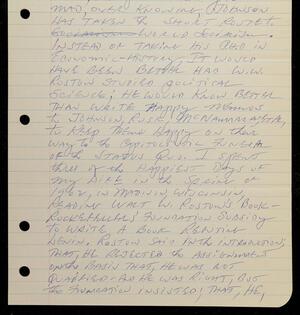 MAD, OVER KNOWING, JOHNSON
HAS TAKEN THE SHORT ROUTE TO
WORLD SOCIALISM.
INSTEAD OF TAKING HIS PH.D IN
ECONOMIC-HISTORY, IT WOULD
HAVE BEEN BETTER HAD W.W.
ROSTOW STUDIED POLITICAL
SCIENCE; HE WOULD KNOW BETTER
THAN WRITE HAPPY MEMOS
TO JOHNSON, RUSK, McNAMARA, ETC,
TO KEEP THEM HAPPY ON THEIR
WAY TO THE CAPITOLISTIC FUNERAL
OF THE STATUS QUO. I SPENT
THREE OF THE HAPPIEST DAYS OF
MY LIFE IN THE SPRING OF
1962, IN MADISON, WISCONSIN,
READING WALT W. ROSTOW'S BOOK-
ROCKEFELLER'S FOUNDATION SUBSIDY
TO WRITE, A BOOK REFUTING
LENIN. ROSTOW SAID IN THE INTRODUCTION,
THAT, HE REJECTED THE ASSIGNMENT
ON THE BASIS THAT, HE WAS NOT
QUALIFIED - AND HE WAS RIGHT, BUT
THE FOUNDATION INSISTED; THAT, HE,